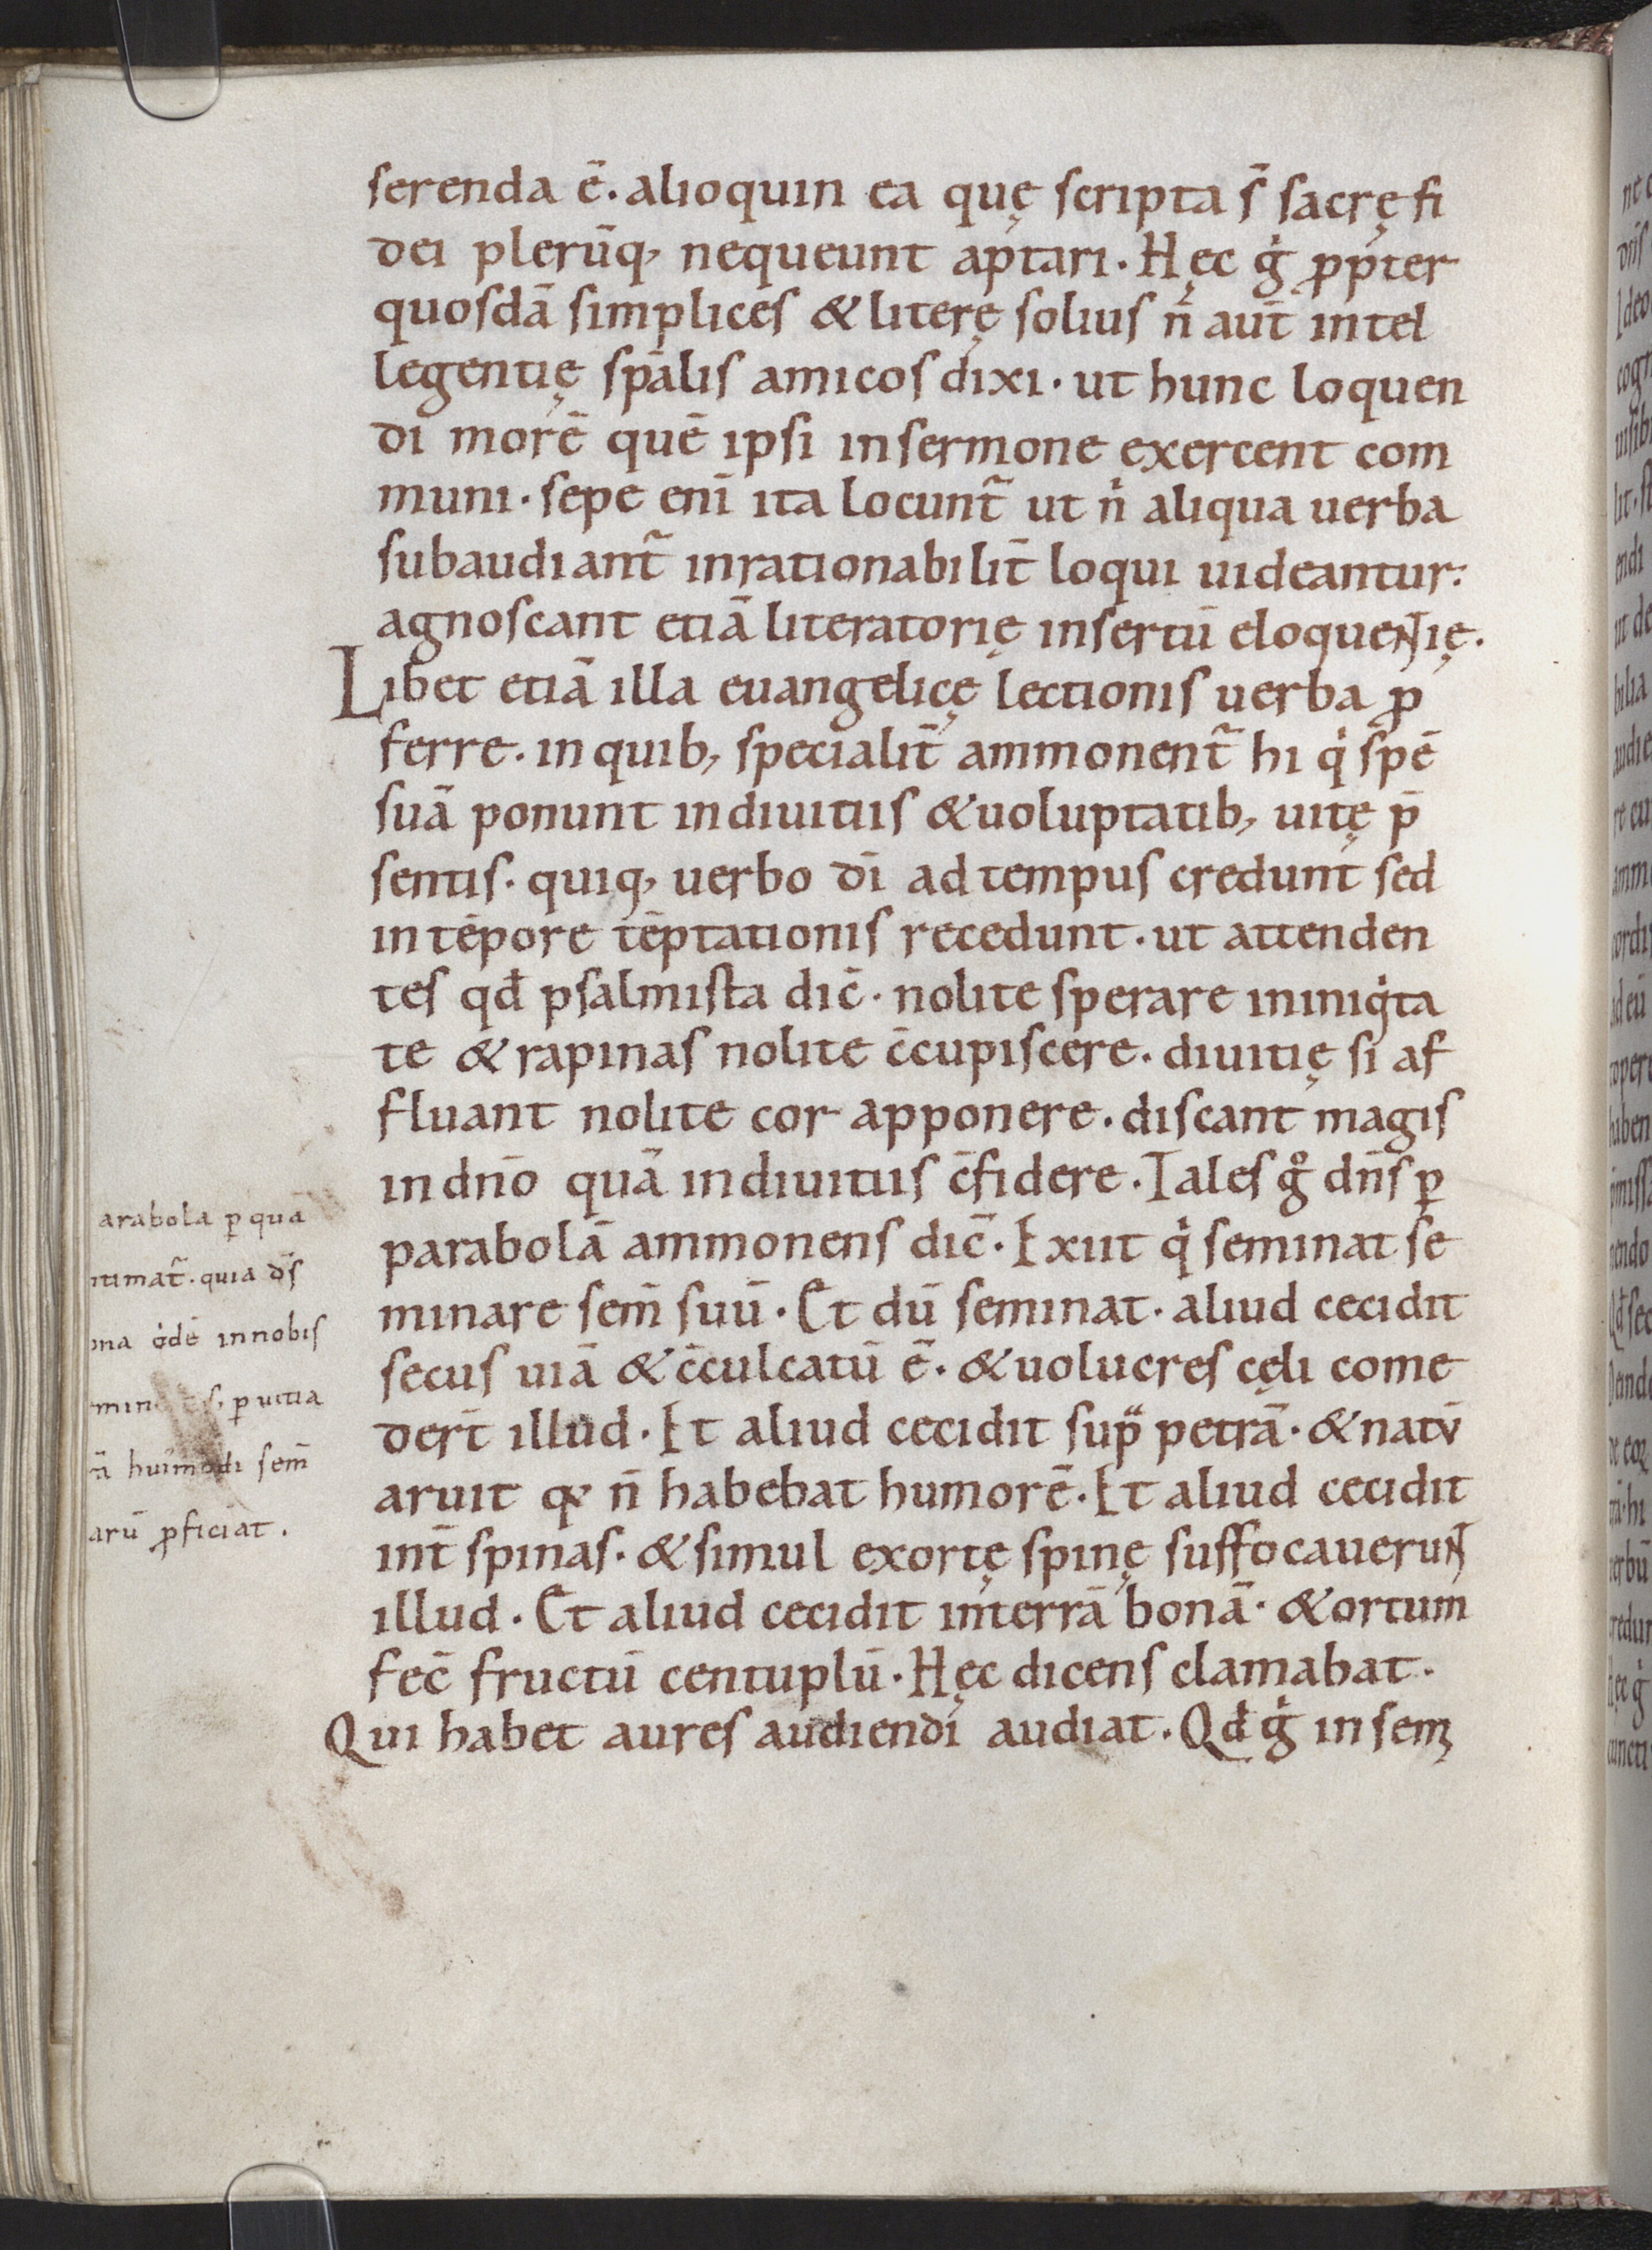 serenda ē. alioquin ea quę scripta s̄ sacrę fi
dei plerūq, nequeunt aptari. Hęc g̍ ꝓpter
quosdā simplices & literę solius n̄ aut̄ intel
legentię sp̄alis amicos dixi. ut hunc loquen
di morē quē ipsi in sermone exercent com
muni. sepe enī ita locunt̄ ut n̍ aliqua uerba
subaudiant̄ inrationabilit̄ loqui uideantur.
agnoscant etiā literatorię insertū eloquentię.
Libet etiā illa euangelicę lectionis uerba ꝓ
ferre. in quib, specialit̄ ammonent̄ hi q̍ spē
suā ponunt in diuitiis & uoluptatib, uitę p̄
sentis. quiq, uerbo dī ad tempus credunt sed
in tēpore tēptationis recedunt. ut attenden
tes qđ psalmista dic̄. nolite sperare in iniq̍ta
te & rapinas nolite c̄cupiscere. diuitię si af
fluant nolite cor apponere. discant magis
in dn̄o quā in diuitiis c̄fidere. Tales gͦ dn̄s ꝑ
parabolā ammonens dic̄. Exiit q̍ seminat se
minare sem̄ suū. Et dū seminat. aliud cecidit
secus uiā & c̄culcatū ē. & uolucres cęli come
der̄t illud. Et aliud cecidit sup̈ petrā. & natū
aruit qꝛ n̄ habebat humorē. Et aliud cecidit
int̄ spinas. & simul exortę spinę suffocauerunt
illud. Et aliud cecidit in terrā bonā. & ortum
fec̄ fructū centuplū. Hęc dicens clamabat.
Qui habet aures audiendi audiat. Qđ g̍ in sem̨
arabola ꝑ quā
ntimat̄. quia d̄s
ona q̍dē in nobis
ꝑ uitia
hui̍modi sem̄
arū ꝓficiat.